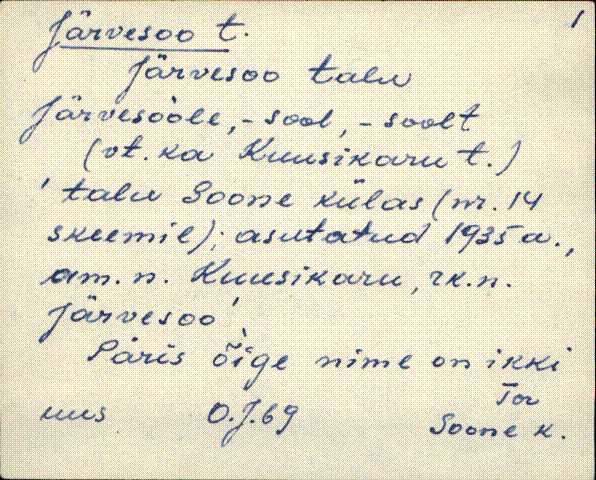 1
Järvesoo t.
Järvesoo talu
Järvesòole, -sool, -soolt
(vt. ka Kuusikaru t.)
'talu Soone külas (nr. 14
skeemil); asutatud 1935 a.,
am. n. Kuusikaru, rk. n.
Järvesoo'
Päris õ̀ige nime on ikki
Tor
uus O.J.69 Soone k.